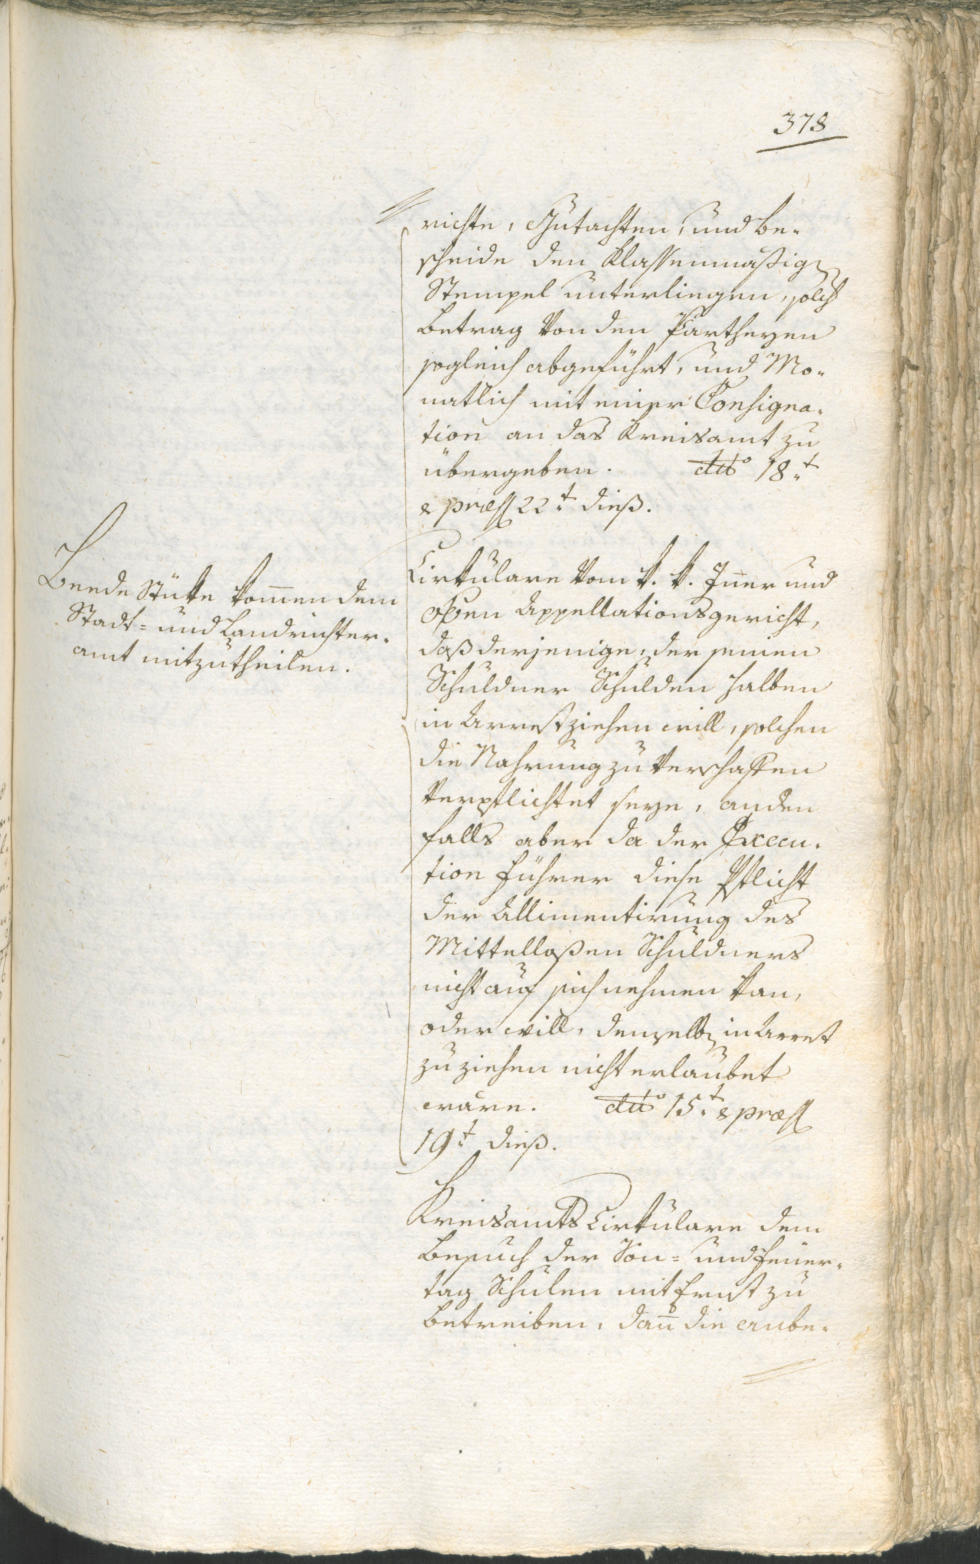 378
richte, Gutachten, und be-
scheide den Klassenmäßigen
Stempel unterliegen, solch
Betrag von den Partheyen
sogleich abgeführt, und Mo-
natlich mit einer Consigna-
tion an das Kreisamt zu
übergeben. ddto 18t
& præs 22t dieß.
Beede Stüke kom̄en dem
Stadt- und Landrichter-
amt mitzutheilen.
Cirkulare vom k. k. In̄er und
obern Appellationsgericht,
daß derjenige, der seinen
Schuldner Schulden halben
in Arrest ziehen will, solchen
die Nahrung zu verschaffen
verpflichtet seye, anden
falls aber da der Execu-
tion führer diese Pflicht
der Allimentirung des
Mittellosen Schuldners
nicht auf sich nehmen kan,
oder will, denselben in Arrest
zu ziehen nicht erlaubet
wäre. ddto 15t & præs
19t dieß.
Kreisamts Cirkulare dem
Besuch der Son- und Feuer-
tag Schulen mit Ernst zu
betreiben, dan̄ die anbe-